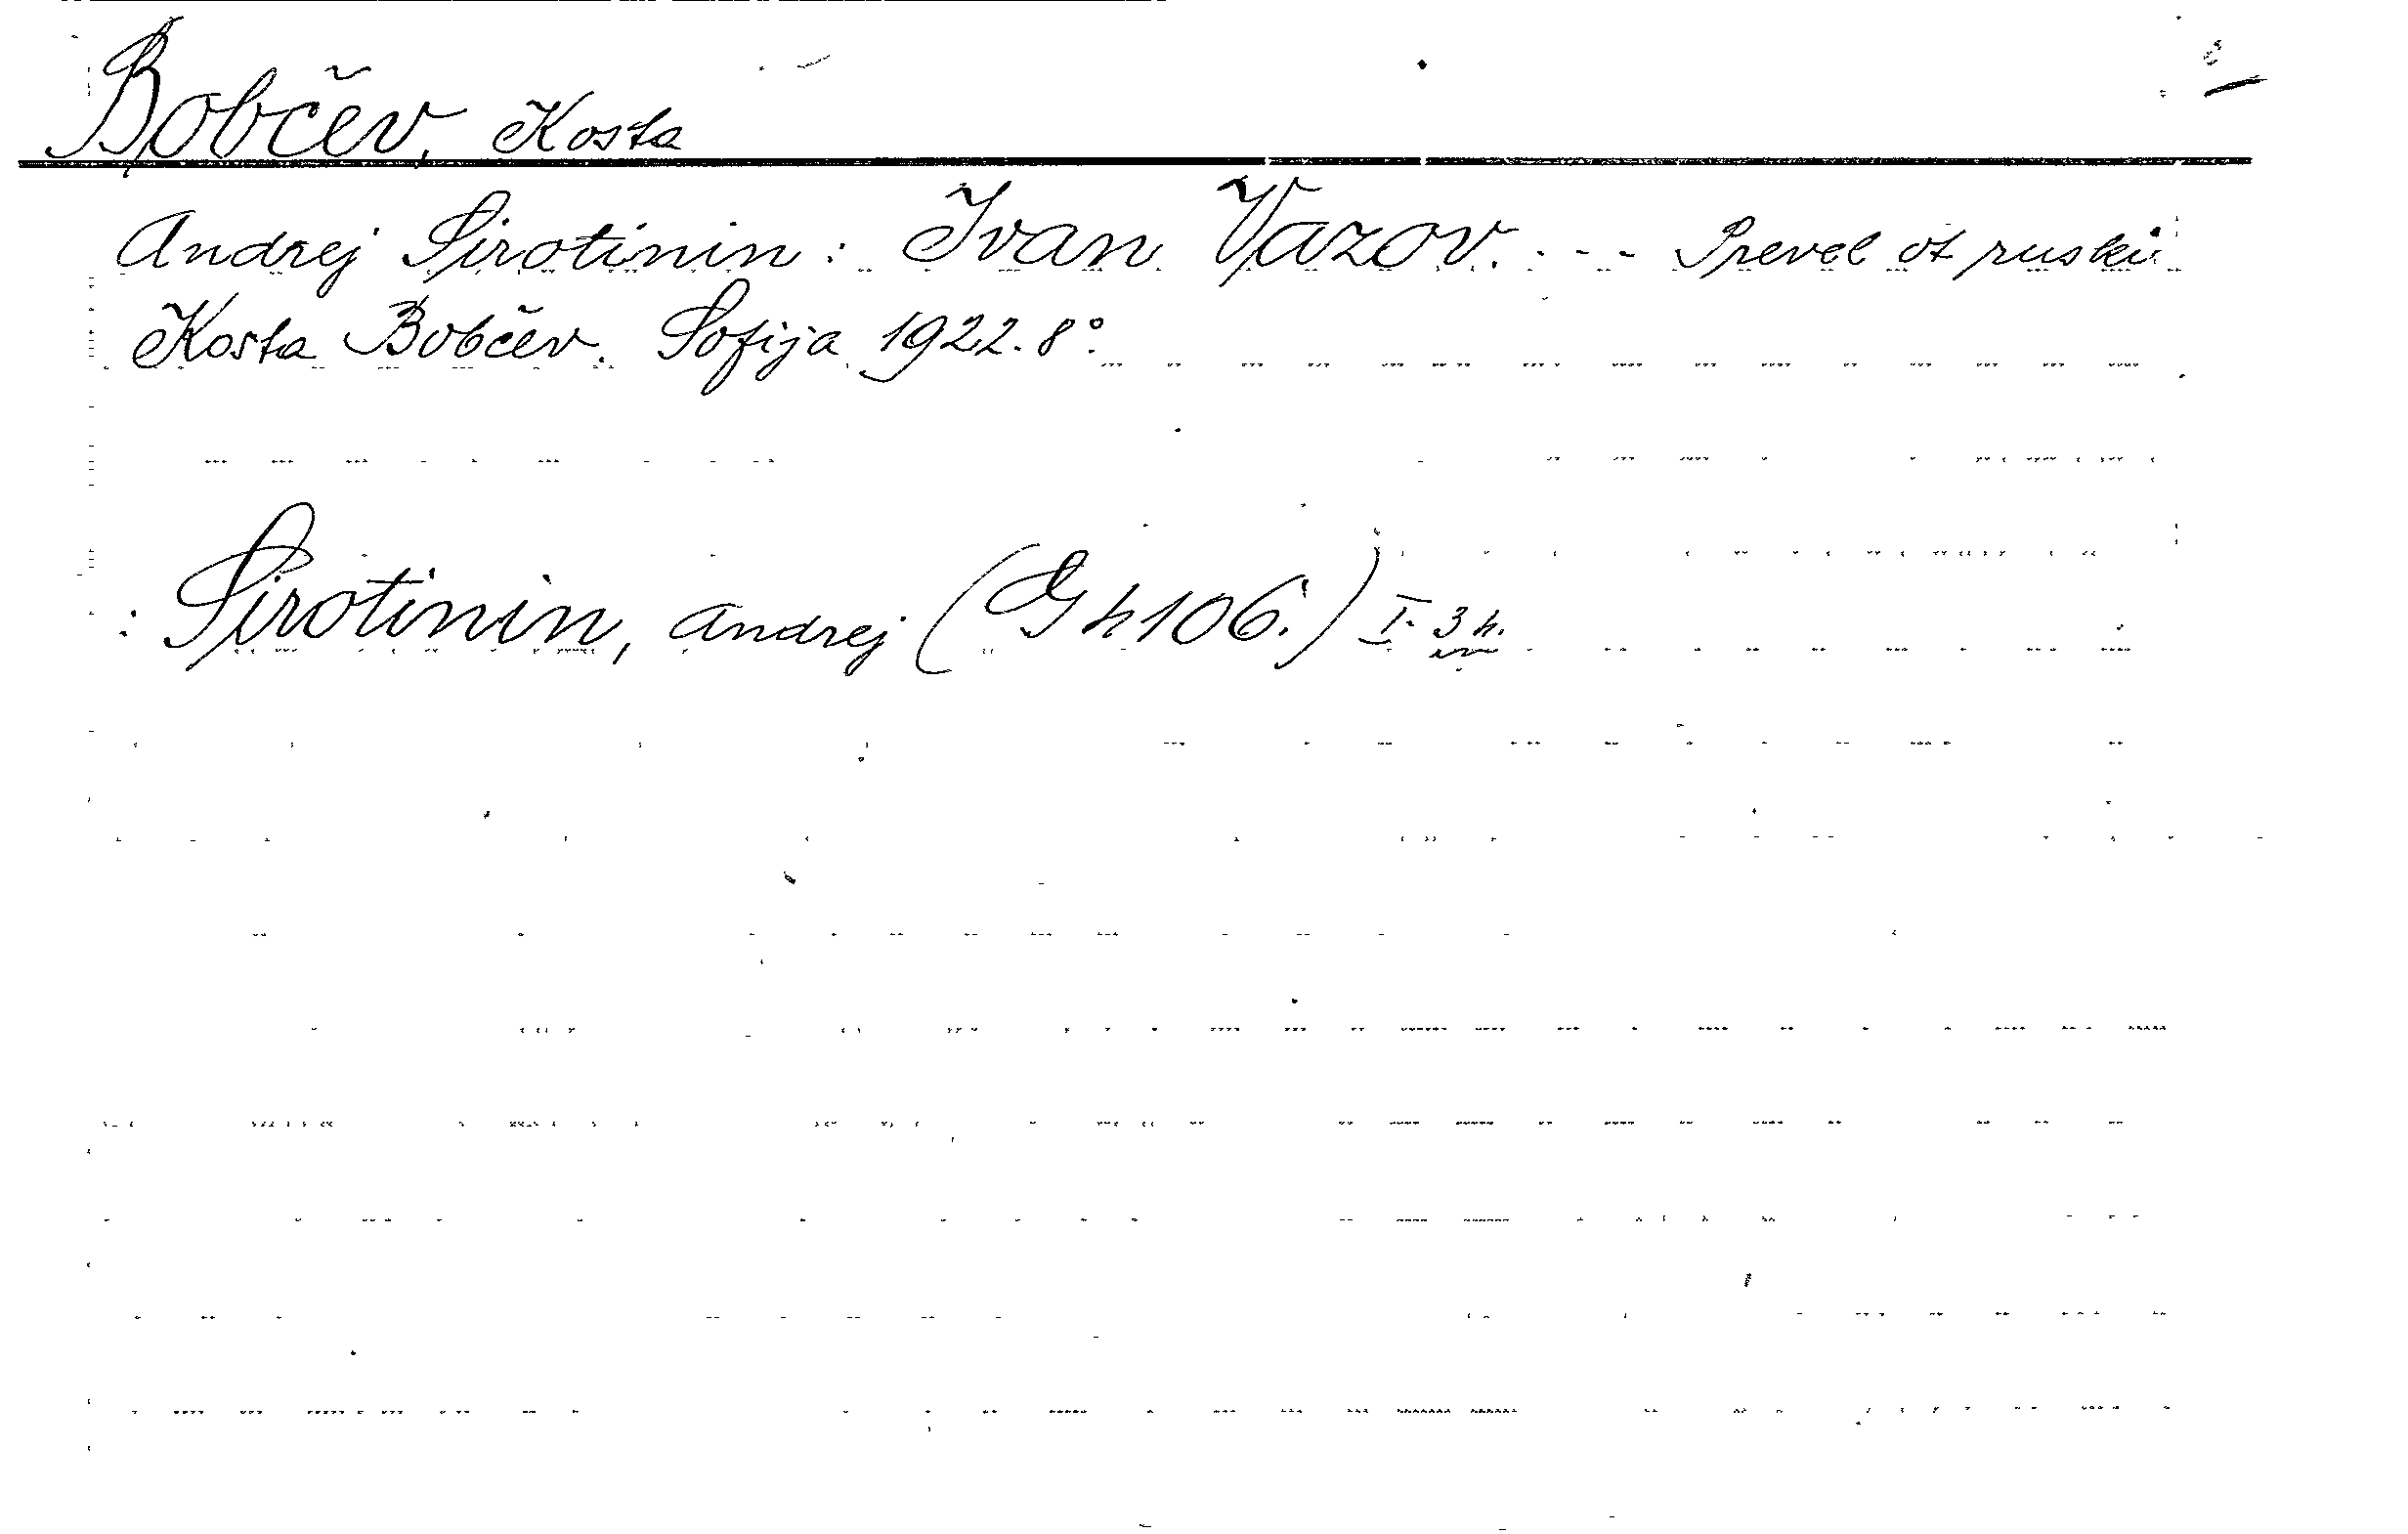 Bobčev, Kosta
Andrej Sirotinin: Ivan Vazov. - - - Prevel ot ruski
Kosta Bobčev. Sofija 1922. 8°.
: Sirotinin, Andrej (G h 106.) I. 3 h.